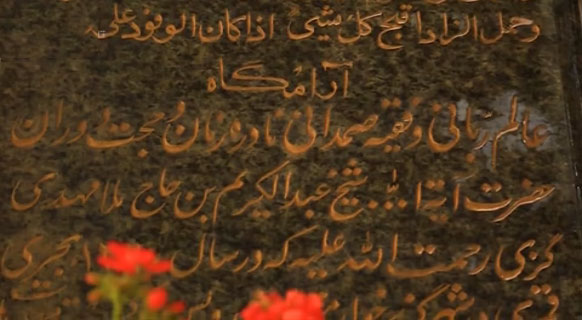 وحمل الزاد اقبح کل شیئی اذا کان الوفود علی
آرامگاه
عالم ربانی و فقیه صمدانی نادره زمان و حجت دوران
حضرت آیة الله شیخ عبدالکریم بن حاج ملا مهدی
گزی رحمت الله علیه که در سال هجری
قمری در شهر